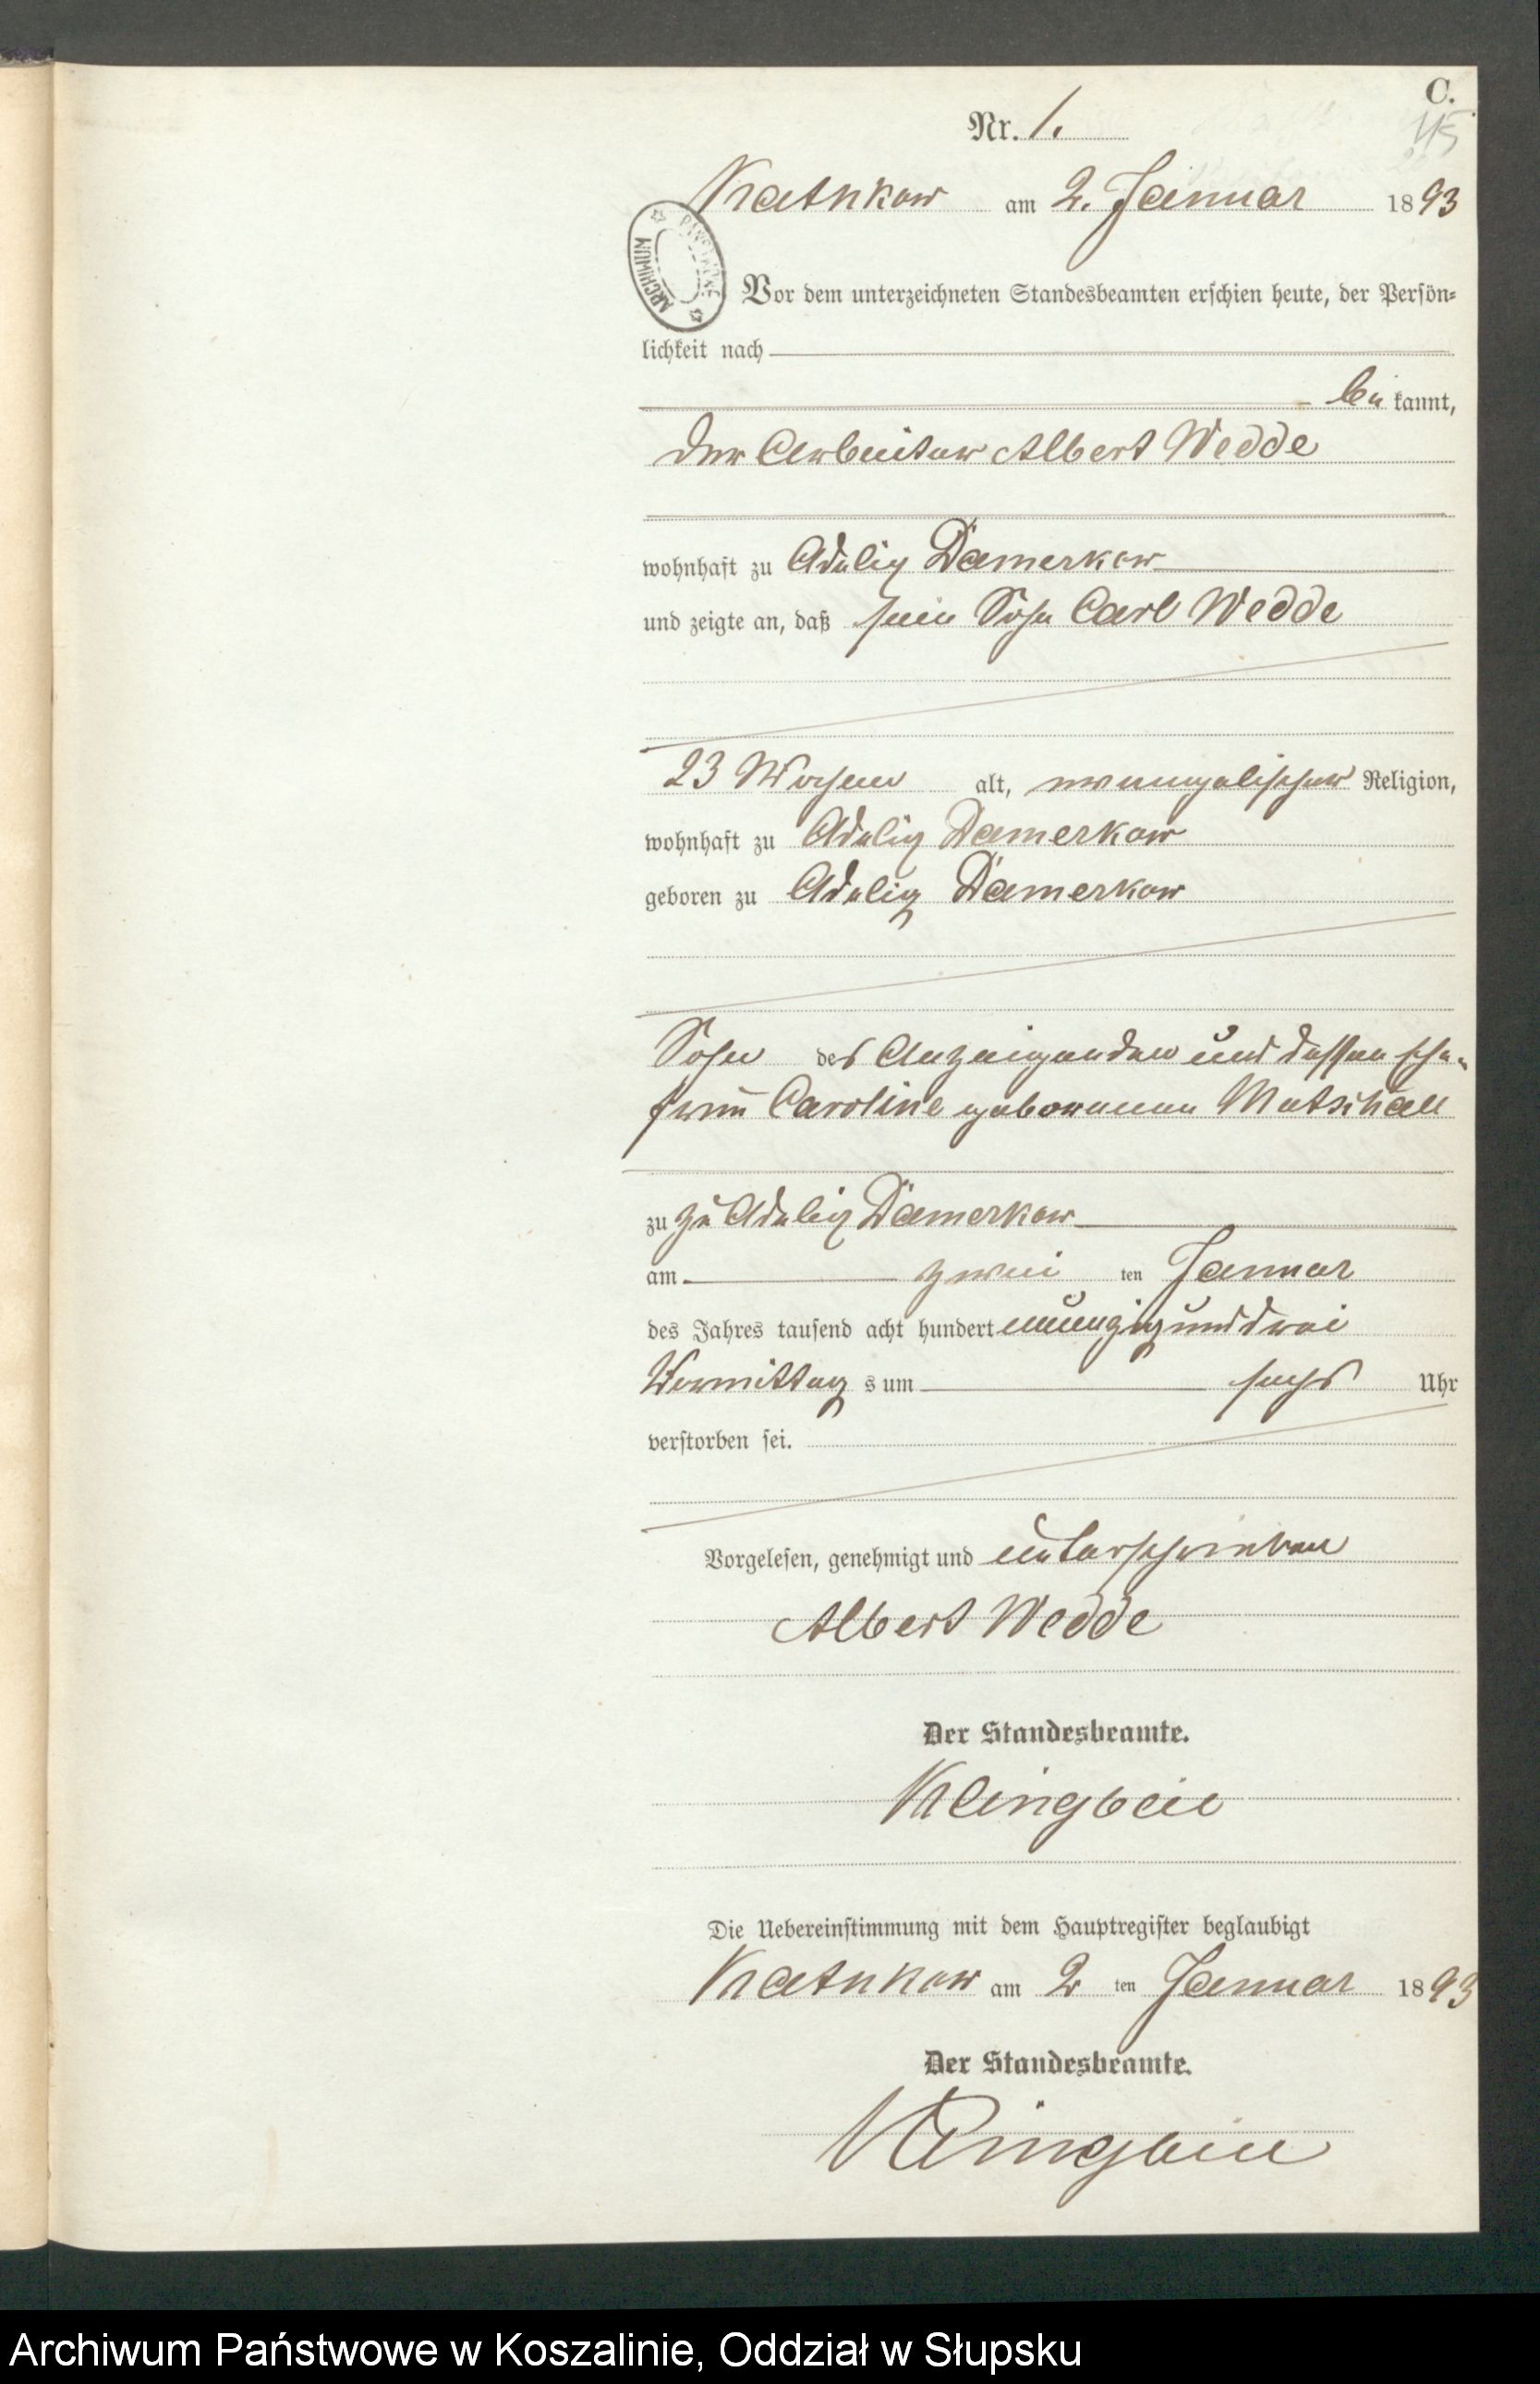 C.
Nr. 1.
115
Kathkow am 2. Januar 1893
ARCHIWUM PAŃSTWOWE
Vor dem unterzeichneten Standesbeamten erschien heute, der Persön-
lichkeit nach
be kannt,
der Arbeiter Albert Wedde
wohnhaft zu Adelig Damerkow
und zeigte an, daß sein Sohn Carl Wedde
23 Wochen alt, evangelischer Religion,
wohnhaft zu Adelig Damerkow
geboren zu Adelig Damerkow
Sohn des Anzeigenden und dessen Ehe-
frau Caroline geborenen Motschall
zu zu Adelig Damerkow
am zwei ten Januar
des Jahres tausend acht hundert neunzig und drei
Vormittag s um sechs Uhr
verstorben sei.
Vorgelesen, genehmigt und unterschrieben
Albert Wedde
Der Standesbeamte.
Klingbeil
Die Uebereinstimmung mit dem Hauptregister beglaubigt
Kathkow am 2 ten Januar 1893
Der Standesbeamte.
Klingbeil
Archiwum Państwowe w Koszalinie, Oddział w Słupsku